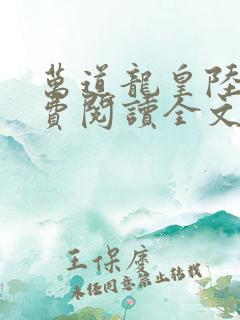 萬道龍皇陸
費閱讀全文
王保慶
未經同意禁止轉載